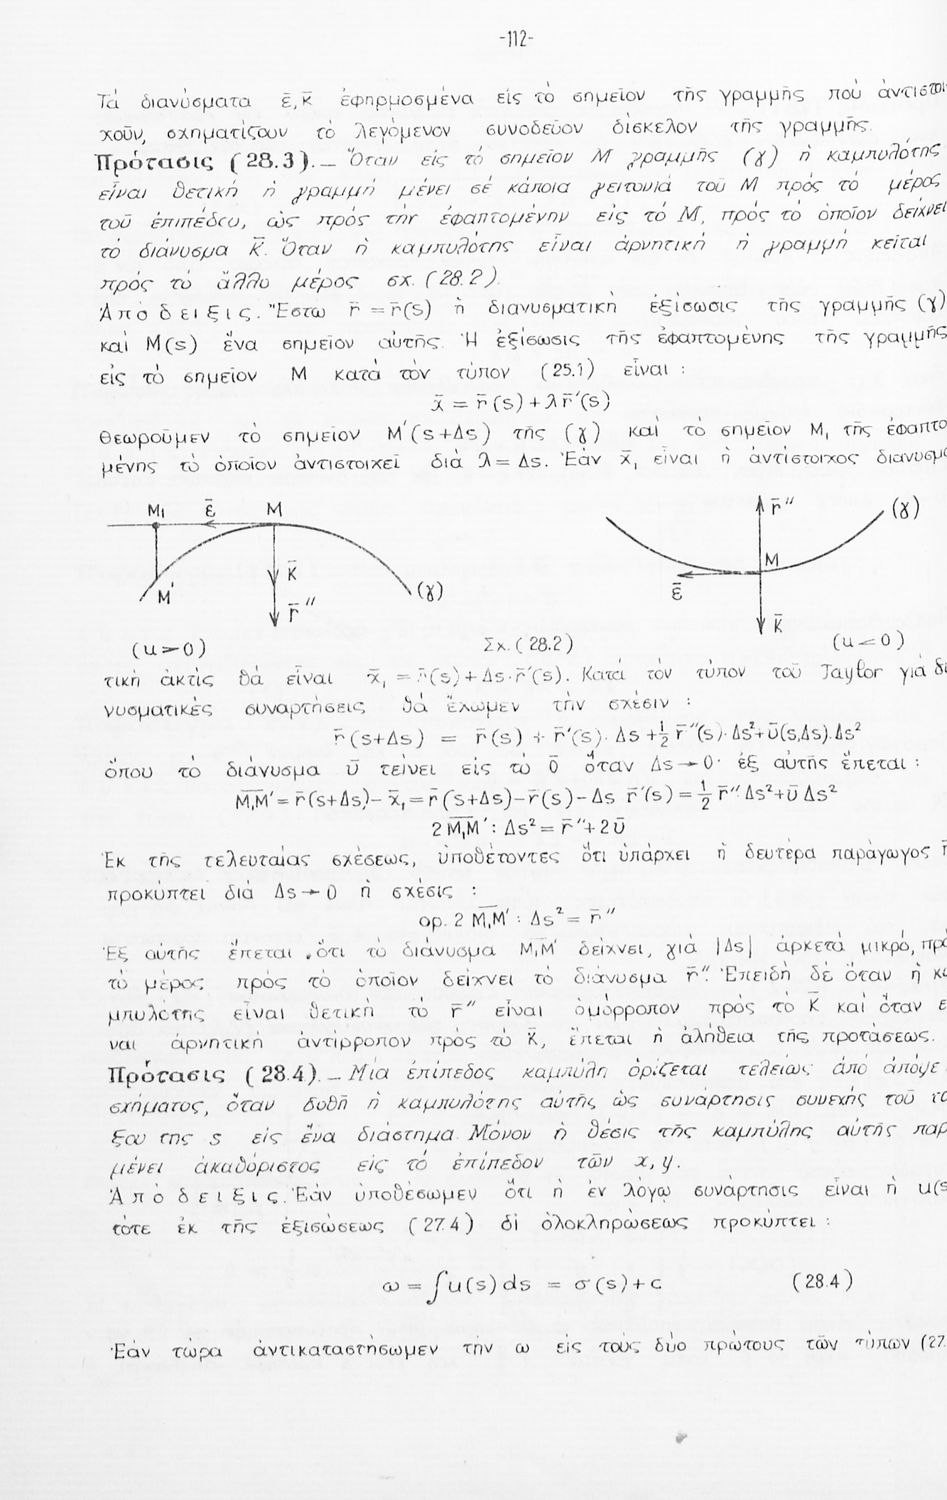 -112-
Τά διανύσματα ε̄, κ̄ ἐφηρμοσμένα εἰς τό σημεῖον τῆς γραμμῆς πού ἀντιστοι
χοῦν, σχηματίζουν τό λεγόμενον συνοδεῦον δίσκελον τῆς γραμμῆς.
Πρότασις (28.3).— Ὅταν εἰς τό σημεῖον M γραμμῆς (γ) ἡ καμπυλότης
εἶναι θετική ἡ γραμμή μένει σέ κάποια γειτονιά τοῦ M πρός τό μέρος
τοῦ ἐπιπέδου, ὡς πρός τήν ἐφαπτομένην εἰς τό M, πρός τό ὁποῖον δείχνει
τό διάνυσμα κ̄. Ὅταν ἡ καμπυλότης εἶναι ἀρνητική ἡ γραμμή κεῖται
πρός τό ἄλλο μέρος σχ. (28.2).
Ἀπόδειξις. Ἔστω r̄ = r̄(s) ἡ διανυσματική ἐξίσωσις τῆς γραμμῆς (γ)
καί M(s) ἕνα σημεῖον αὐτῆς. Ἡ ἐξίσωσις τῆς ἐφαπτομένης τῆς γραμμῆς
εἰς τό σημεῖον M κατά τόν τύπον (25.1) εἶναι :
x̄ = r̄(s) + λr̄′(s)
Θεωροῦμεν τό σημεῖον M′(s+Δs) τῆς (γ) καί τό σημεῖον M₁ τῆς ἐφαπτο
μένης τό ὁποῖον ἀντιστοιχεῖ διά λ = Δs. Ἐάν x̄₁ εἶναι ἡ ἀντίστοιχος διανυσμα
M₁ ε̄ M κ̄ r̄″ M′ (γ)
(u>0)
Σχ. (28.2)
r̄″ (γ) M ε̄ κ̄
(u<0)
τική ἀκτίς θά εἶναι x̄₁ = r̄(s)+Δs·r̄′(s). Κατά τόν τύπον τοῦ Taylor γιά δι
νυσματικές συναρτήσεις θά ἔχωμεν τήν σχέσιν :
r̄(s+Δs) = r̄(s) + r̄′(s)·Δs + ½ r̄″(s)·Δs²+ῡ(s,Δs).Δs²
ὅπου τό διάνυσμα ῡ τείνει εἰς τό 0̄ ὅταν Δs→0· ἐξ αὐτῆς ἕπεται :
M₁M′ = r̄(s+Δs) - x̄₁ = r̄(s+Δs)-r̄(s)-Δs r̄′(s) = ½ r̄″·Δs²+ῡ Δs²
2 M₁M′ : Δs² = r̄″+2ῡ
Ἐκ τῆς τελευταίας σχέσεως, ὑποθέτοντες ὅτι ὑπάρχει ἡ δευτέρα παράγωγος r̄
προκύπτει διά Δs→0 ἡ σχέσις :
ορ. 2 M₁M′ : Δs² = r̄″
Ἐξ αὐτῆς ἕπεται ὅτι τό διάνυσμα M₁M′ δείχνει, γιά |Δs| ἀρκετά μικρό, πρό
τό μέρος πρός τό ὁποῖον δείχνει τό διάνυσμα r̄″. Ἐπειδή δέ ὅταν ἡ κα
μπυλότης εἶναι θετική τό r̄″ εἶναι ὁμόρροπον πρός τό κ̄ καί ὅταν εἶ
ναι ἀρνητική ἀντίρροπον πρός τό κ̄, ἕπεται ἡ ἀλήθεια τῆς προτάσεως.
Πρότασις (28.4).— Μία ἐπίπεδος καμπύλη ὁρίζεται τελείως ἀπό ἀπόψε
σχήματος, ὅταν δοθῆ ἡ καμπυλότης αὐτῆς ὡς συνάρτησις συνεχής τοῦ τό
ξου της s εἰς ἕνα διάστημα. Μόνον ἡ θέσις τῆς καμπύλης αὐτῆς παρ
μένει ἀκαθόριστος εἰς τό ἐπίπεδον τῶν x, y.
Ἀπόδειξις. Ἐάν ὑποθέσωμεν ὅτι ἡ ἐν λόγῳ συνάρτησις εἶναι ἡ u(s
τότε ἐκ τῆς ἐξισώσεως (27.4) δι ὁλοκληρώσεως προκύπτει :
ω = ∫u(s)ds = σ(s)+c (28.4)
Ἐάν τώρα ἀντικαταστήσωμεν τήν ω εἰς τούς δύο πρώτους τῶν τύπων (27.